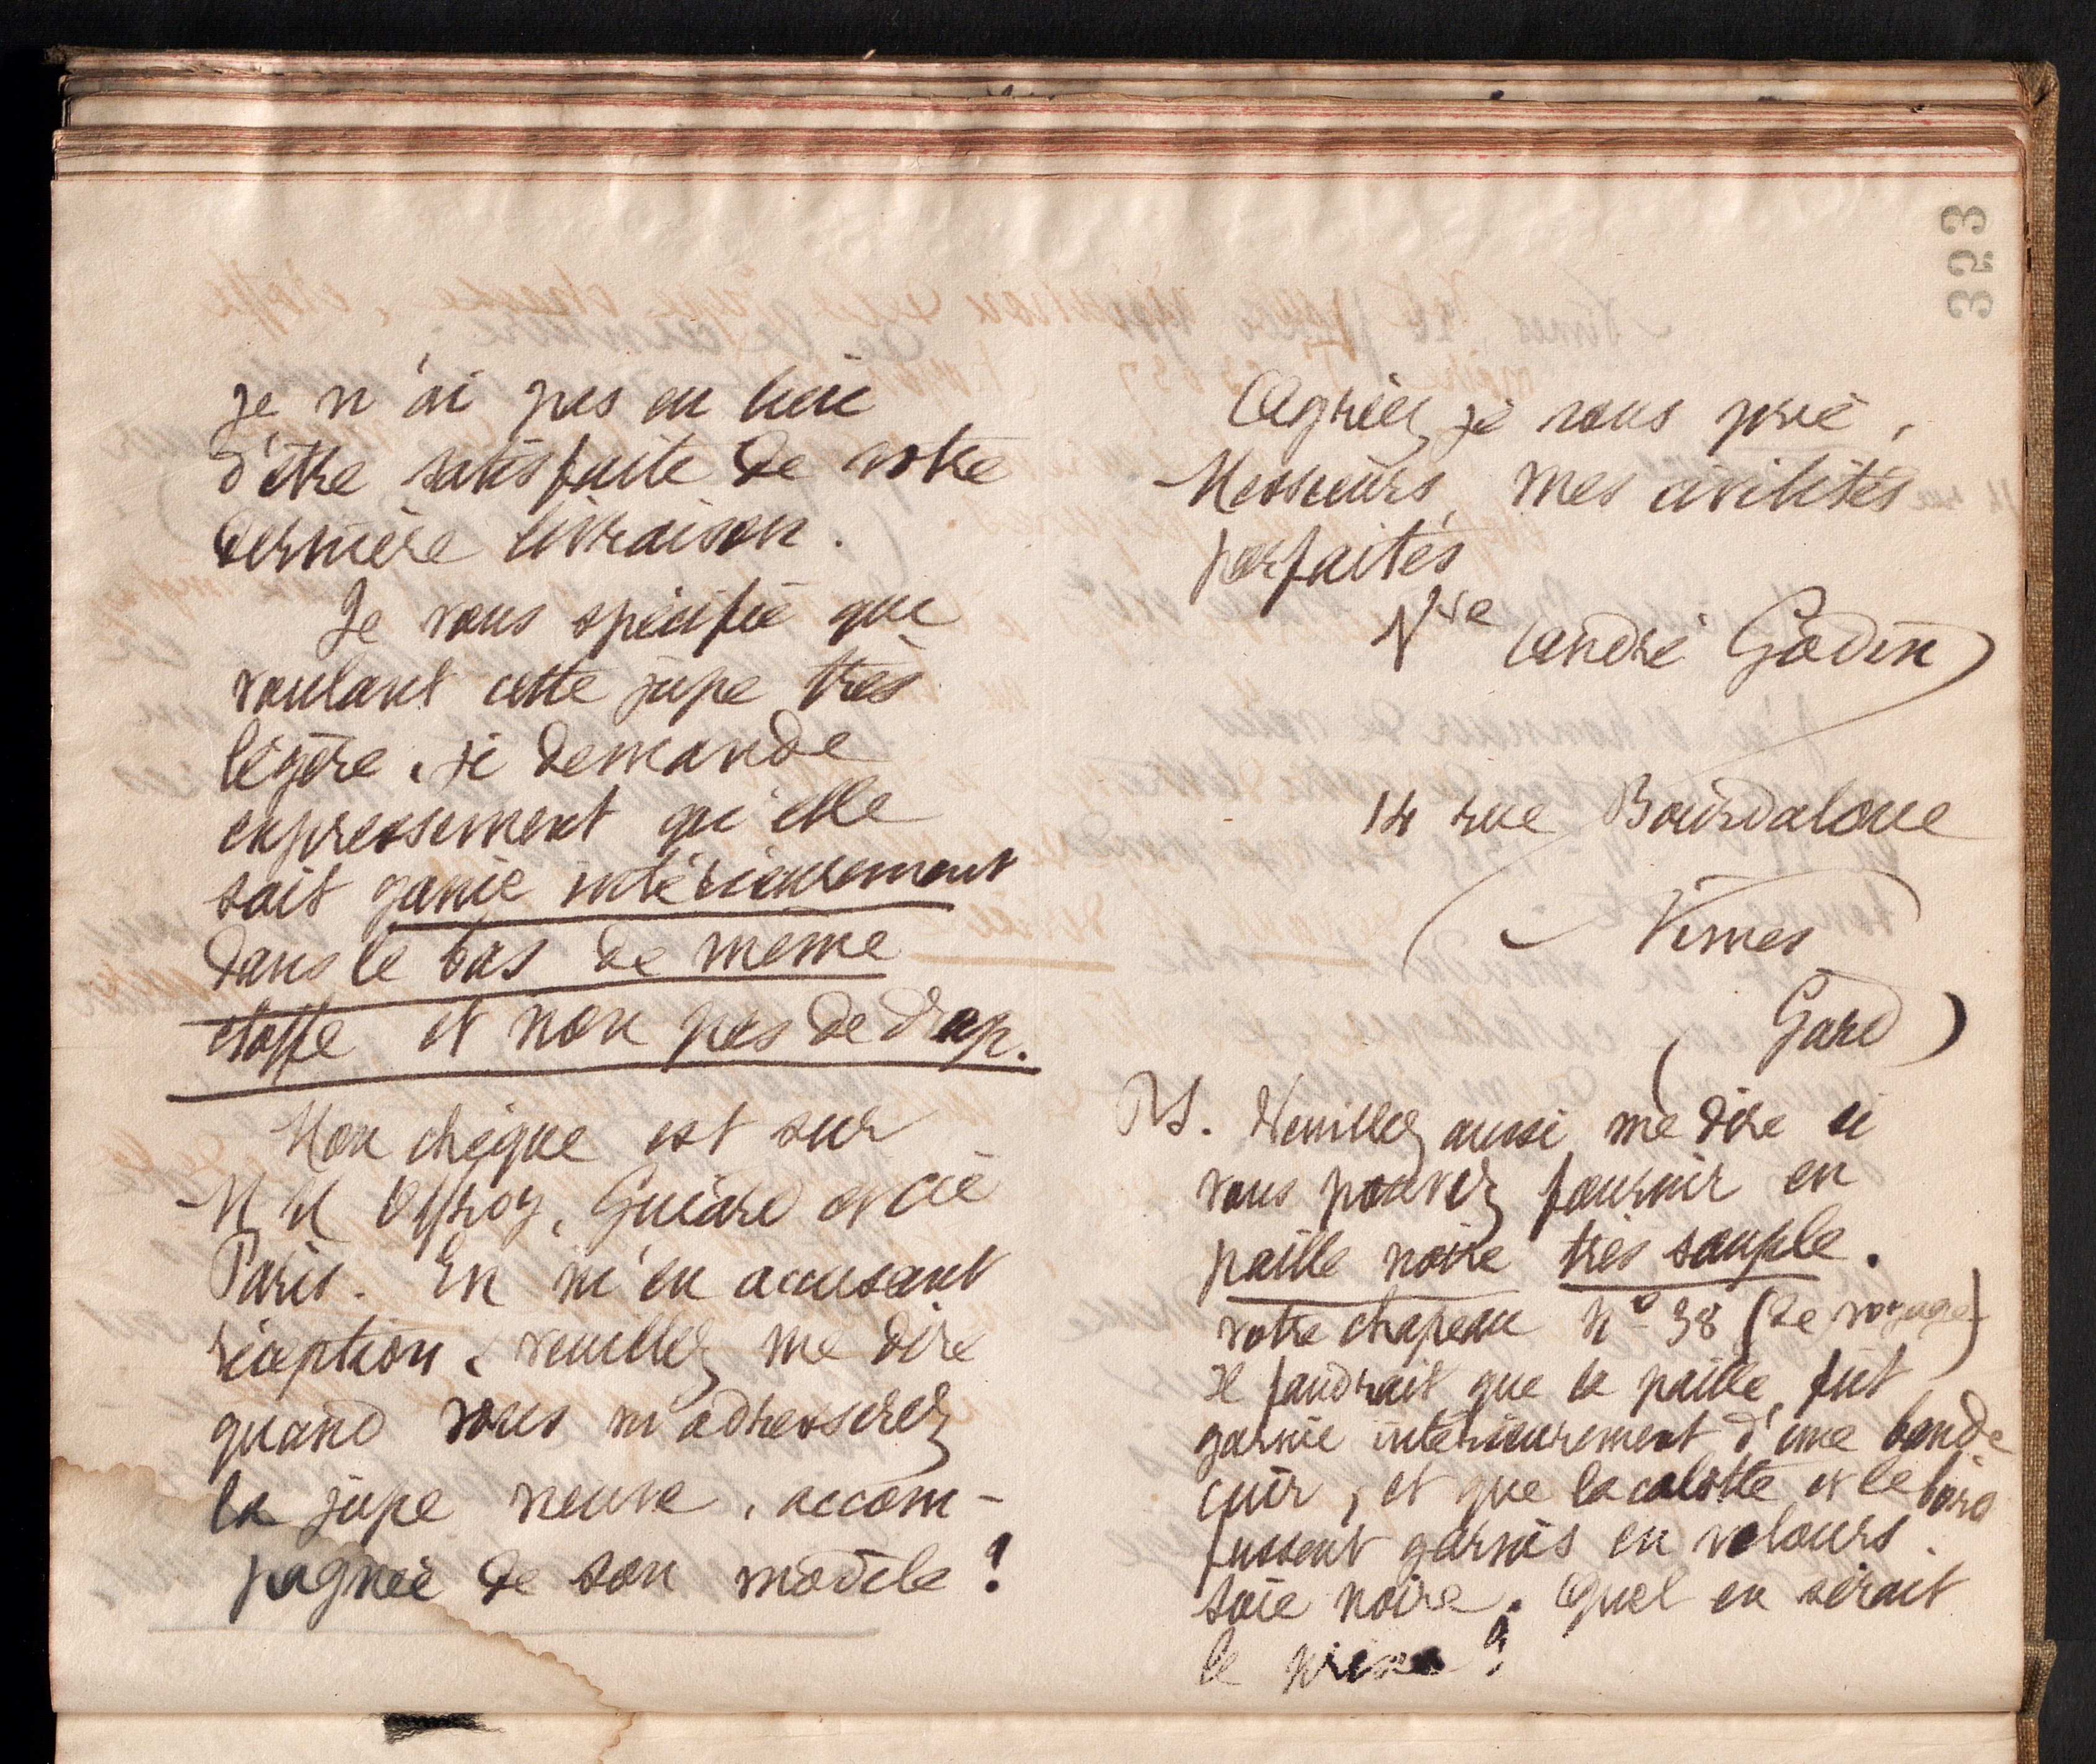 je n'ai pas eu lieu
d'être satisfaite de votre
dernière livraison.
Je vous spécifie que
voulant cette jupe très
légère, je demande
expressement qu'elle
soit garnie intérieurement
dans le bas de même
étoffe et non pas de drap.
Mon chèque est sur
MM Offroy, Guiard et Cie
Paris. En m'en accusant
réception, veuillez me dire
quand vous m'adresserez
la jupe neuve, accom-
pagnée de son modèle?
Agréez, je vous prie,
Messieurs, mes civilités
parfaites
Vve André Godin
14 rue Bourdaloue
Nîmes
(Gard)
PS. Veuillez aussi me dire si
vous pouvez fournir en
paille noire très souple.
votre chapeau No 38 (de voyage)
Il faudrait que la paille fût
garnie intérieurement d'une bande
cuir, et que la calotte et le bord
fussent garnis en velours
soie noire. Quel en serait
le prix?
353